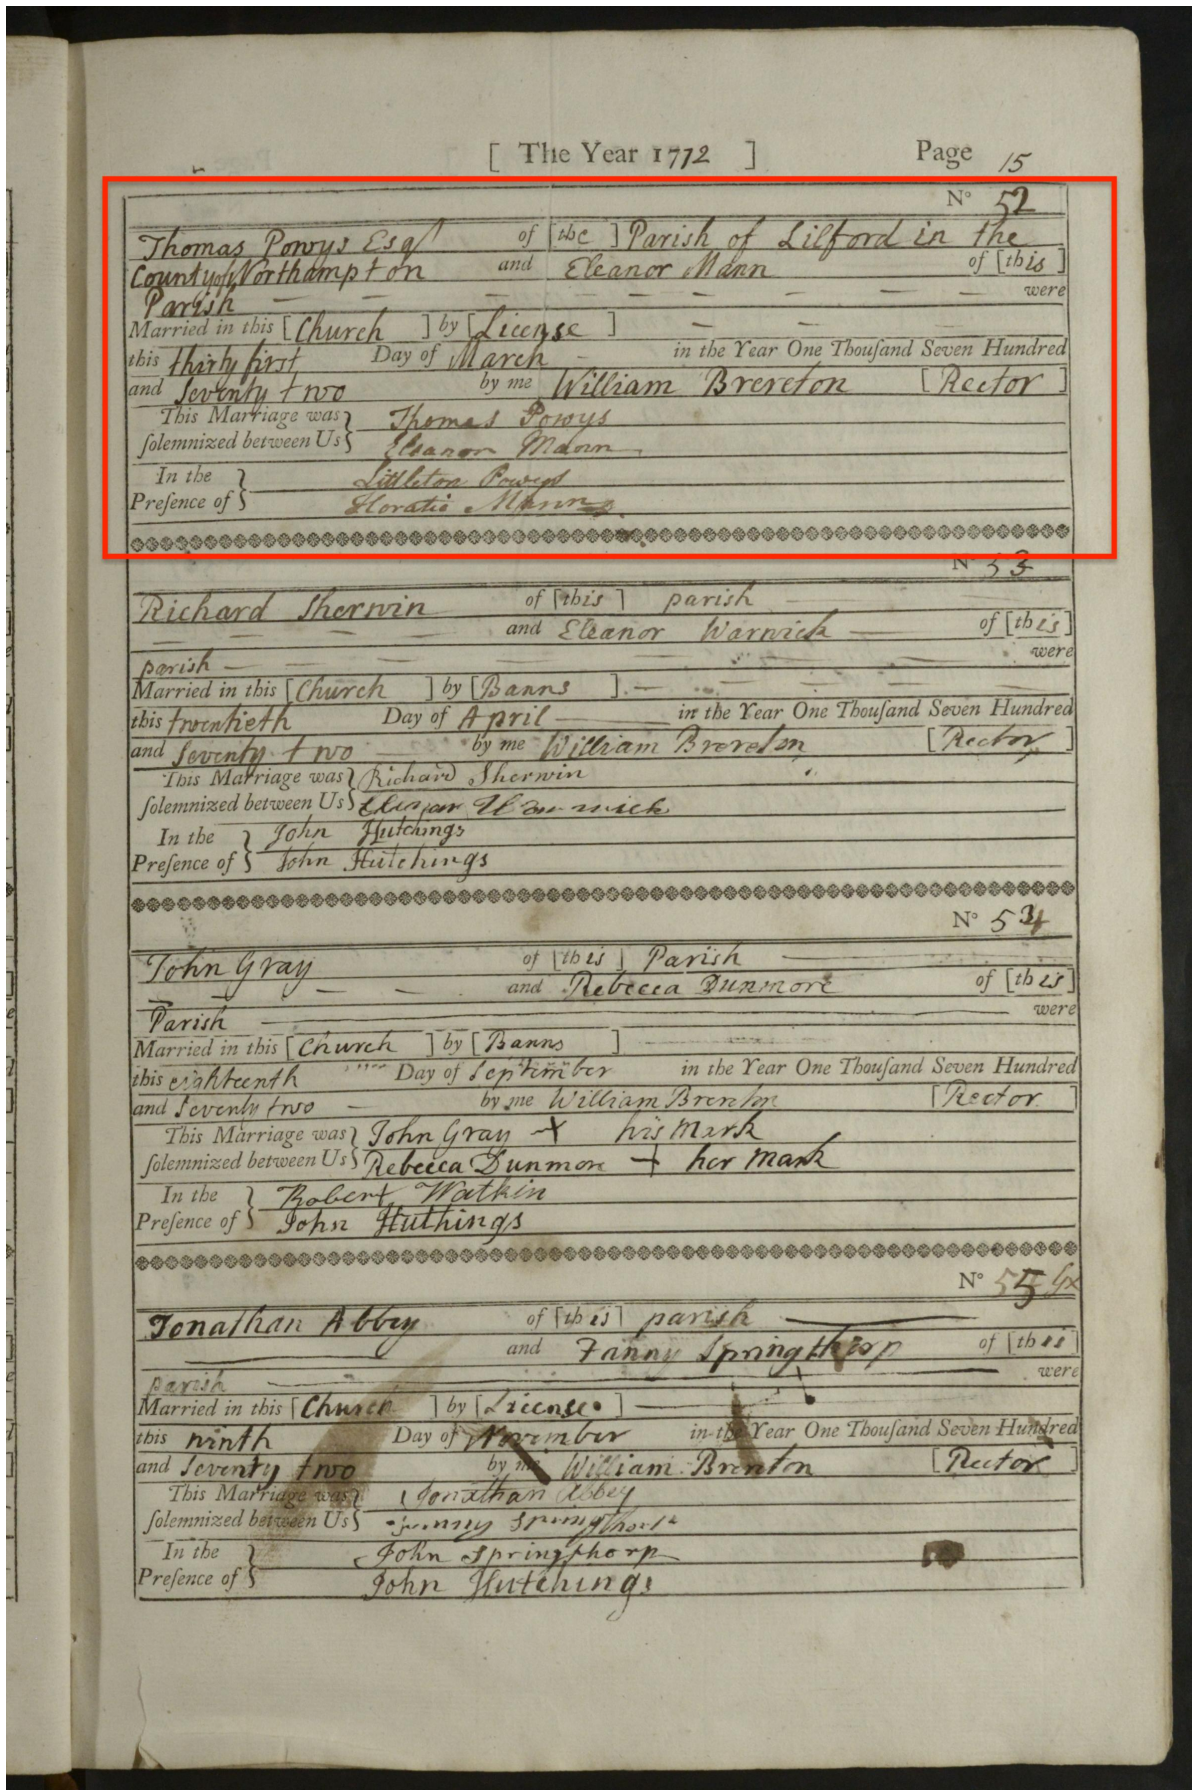 [ The Year 1772 ] Page 15
N° 52
Thomas Powys Esqr of [the ] Parish of Lilford in the
County of Northampton and Eleanor Mann of [this ]
Parish — — — — — — — — — were
Married in this [Church ] by [License ] — —
this thirty first Day of March — in the Year One Thouſand Seven Hundred
and Seventy two by me William Brereton [Rector ]
This Marriage was } Thomas Powys
ſolemnized between Us } Eleanor Mann
In the } Littleton Powys
Preſence of } Horatio Mann
N° 53
Richard Sherwin of [this ] parish —
— — — — and Eleanor Warwick — of [this]
parish — — — — — — — were
Married in this [Church ] by [Banns ] — — — —
this twentieth Day of April — in the Year One Thouſand Seven Hundred
and Seventy two by me William Brereton [Rector ]
This Marriage was } Richard Sherwin
ſolemnized between Us } Warwick
In the } John Hutchings
Preſence of } John Hutchings
N° 54
John Gray of [this ] Parish —
— — — — and Rebecca Dunmore of [this]
Parish — were
Married in this [Church ] by [Banns ] —
this eighteenth Day of September in the Year One Thouſand Seven Hundred
and Seventy two — by me William Brereton [Rector ]
This Marriage was } John Gray + his Mark
ſolemnized between Us } Rebecca Dunmore + her Mark
In the } Robert Watkin
Preſence of } John Huthings
N° 55
Jonathan Abbey of [this] parish —
— and Fanny Springthorp of [this]
parish — were
Married in this [Church ] by [License ] —
this ninth Day of November in the Year One Thouſand Seven Hundred
and Seventy two by me William Brereton [Rector ]
This Marriage was } Jonathan Abbey
ſolemnized between Us } Fanny Springthorp
In the } John Springthorp
Preſence of } John Hutchings